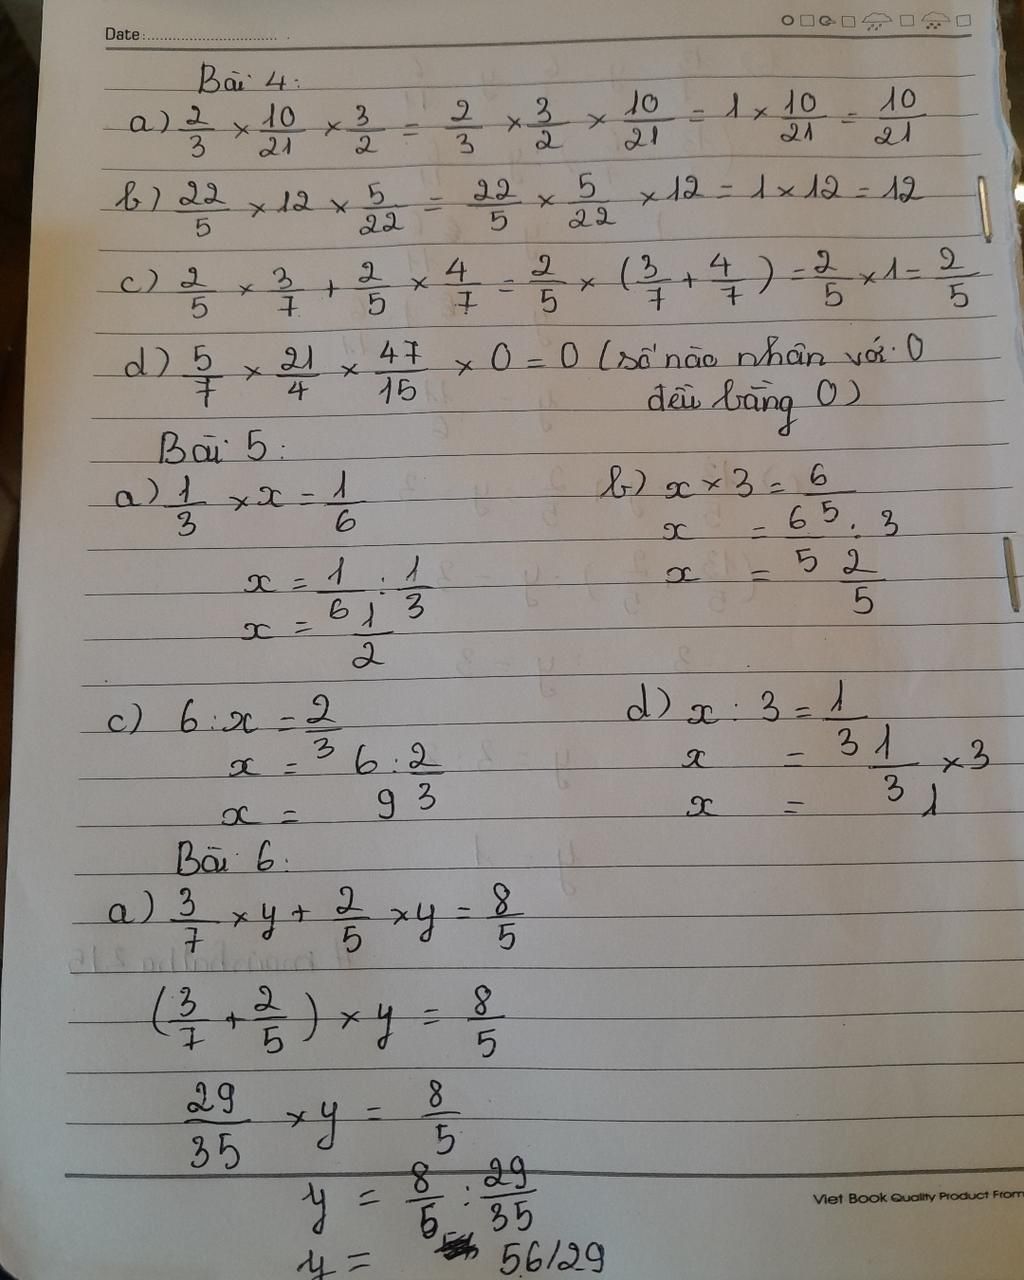 Date:
Bài 4:
a) 2/3 × 10/21 × 3/2 = 2/3 × 3/2 × 10/21 = 1 × 10/21 = 10/21
b) 22/5 × 12 × 5/22 = 22/5 × 5/22 × 12 = 1 × 12 = 12
c) 2/5 × 3/7 + 2/5 × 4/7 = 2/5 × (3/7 + 4/7) = 2/5 × 1 = 2/5
d) 5/7 × 21/4 × 47/15 × 0 = 0 (số nào nhân với 0
đều bằng 0)
Bài 5:
a) 1/3 × x = 1/6
x = 1/6 : 1/3
x = 1/2
b) x × 3 = 6/5
x = 6/5 : 3
x = 2/5
c) 6 : x = 2/3
x = 6 : 2/3
x = 9
d) x : 3 = 1/3
x = 1/3 × 3
x = 1
Bài 6:
a) 3/7 × y + 2/5 × y = 8/5
(3/7 + 2/5) × y = 8/5
29/35 × y = 8/5
y = 8/5 : 29/35
y = 56/29
Viet Book Quality Product From